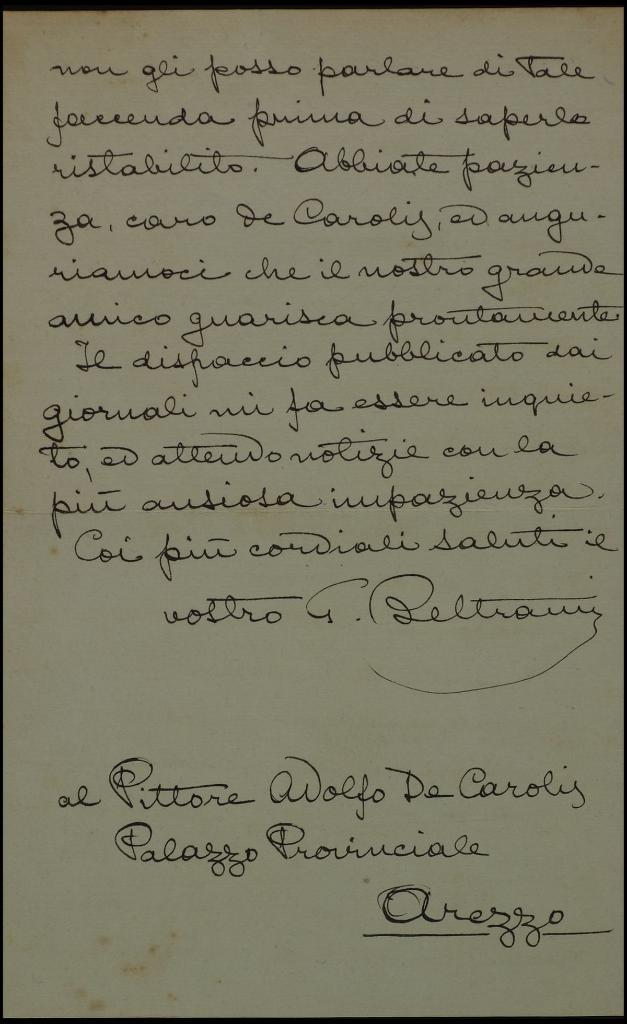 non gli posso parlare di tale
faccenda prima di saperlo
ristabilito. Abbiate pazien-
za, caro de Carolis, ed augu-
riamoci che il nostro grande
amico guarisca prontamente
Il dispaccio pubblicato dai
giornali mi fa essere inquie-
to, ed attendo notizie con la
più ansiosa impazienza.
Coi più cordiali saluti il
vostro G. Beltrami
al Pittore Adolfo De Carolis
Palazzo Provinciale
Arezzo